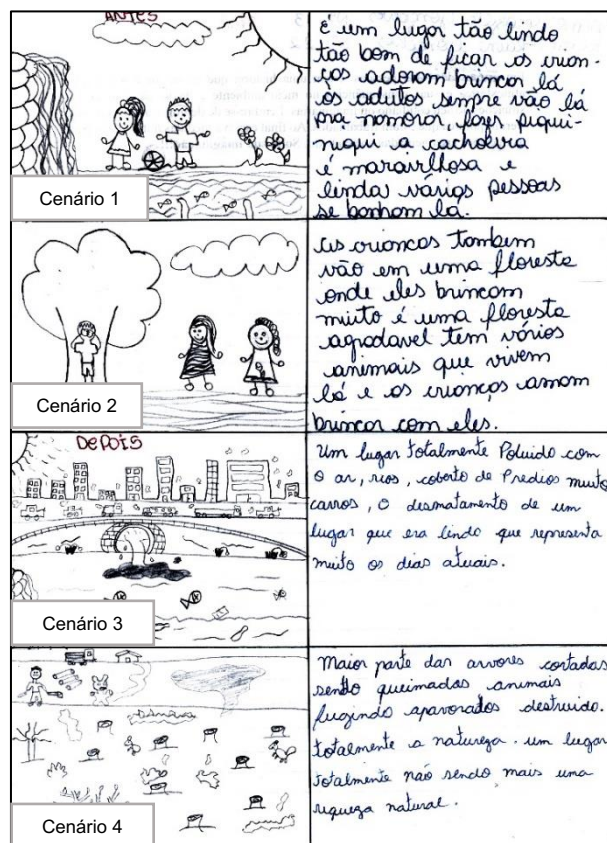 ANTES
Cenário 1
É um lugar tão lindo
tão bom de ficar as crian-
ças adoram brincar lá
os adultos sempre vão lá
pra namorar, fazer piqui-
niqui a cachoeira
é maravilhosa e
linda várias pessoas
se banham lá.
Cenário 2
As crianças tambem
vão em uma floresta
onde eles brincam
muito é uma floresta
agradavel tem vários
animais que vivem
lá e as crianças amam
brincar com eles.
DePOiS
Cenário 3
Um lugar totalmente Poluido com
o ar, rios, coberto de Predios muito
carros, o desmatamento de um
lugar que era lindo que representa
muito os dias atuais.
Cenário 4
Maior parte das arvores cortadas
sendo queimadas animais
fugindo apavorados destruido.
totalmente a natureza. um lugar
totalmente não sendo mais uma
riqueza natural.